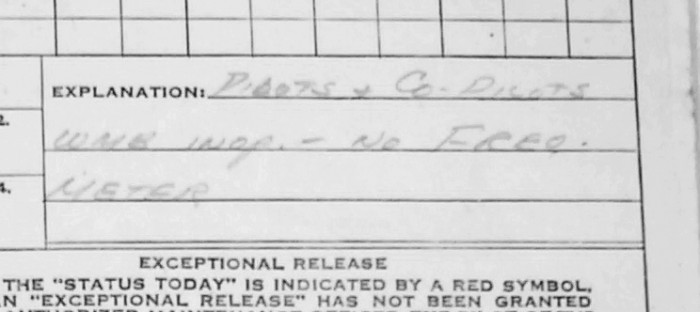 EXPLANATION: Pilots & Co-Pilots
inop. - No FREQ.
METER
2.
4.
EXCEPTIONAL RELEASE
THE "STATUS TODAY" IS INDICATED BY A RED SYMBOL,
"EXCEPTIONAL RELEASE" HAS NOT BEEN GRANTED